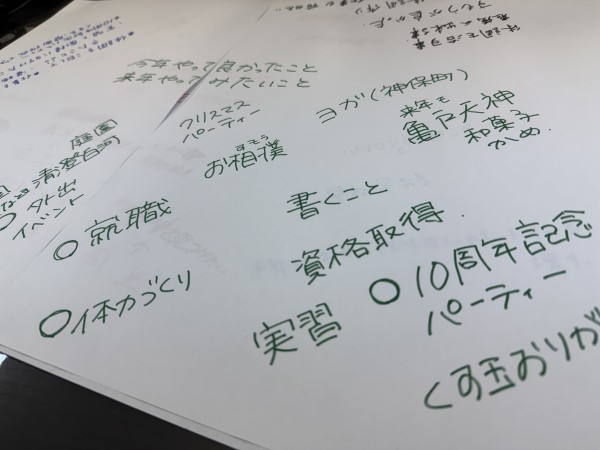 今年やって良かったこと
来年やってみたいこと
クリスマス
パーティー
ヨガ(神保町)
来年も
亀戸天神
和菓子
かめ.
すもう
お相撲
庭園
清澄白河
外出
イベント
○就職
書くこと
資格取得.
○体力づくり
実習
○10周年記念
パーティー
くす玉おりが